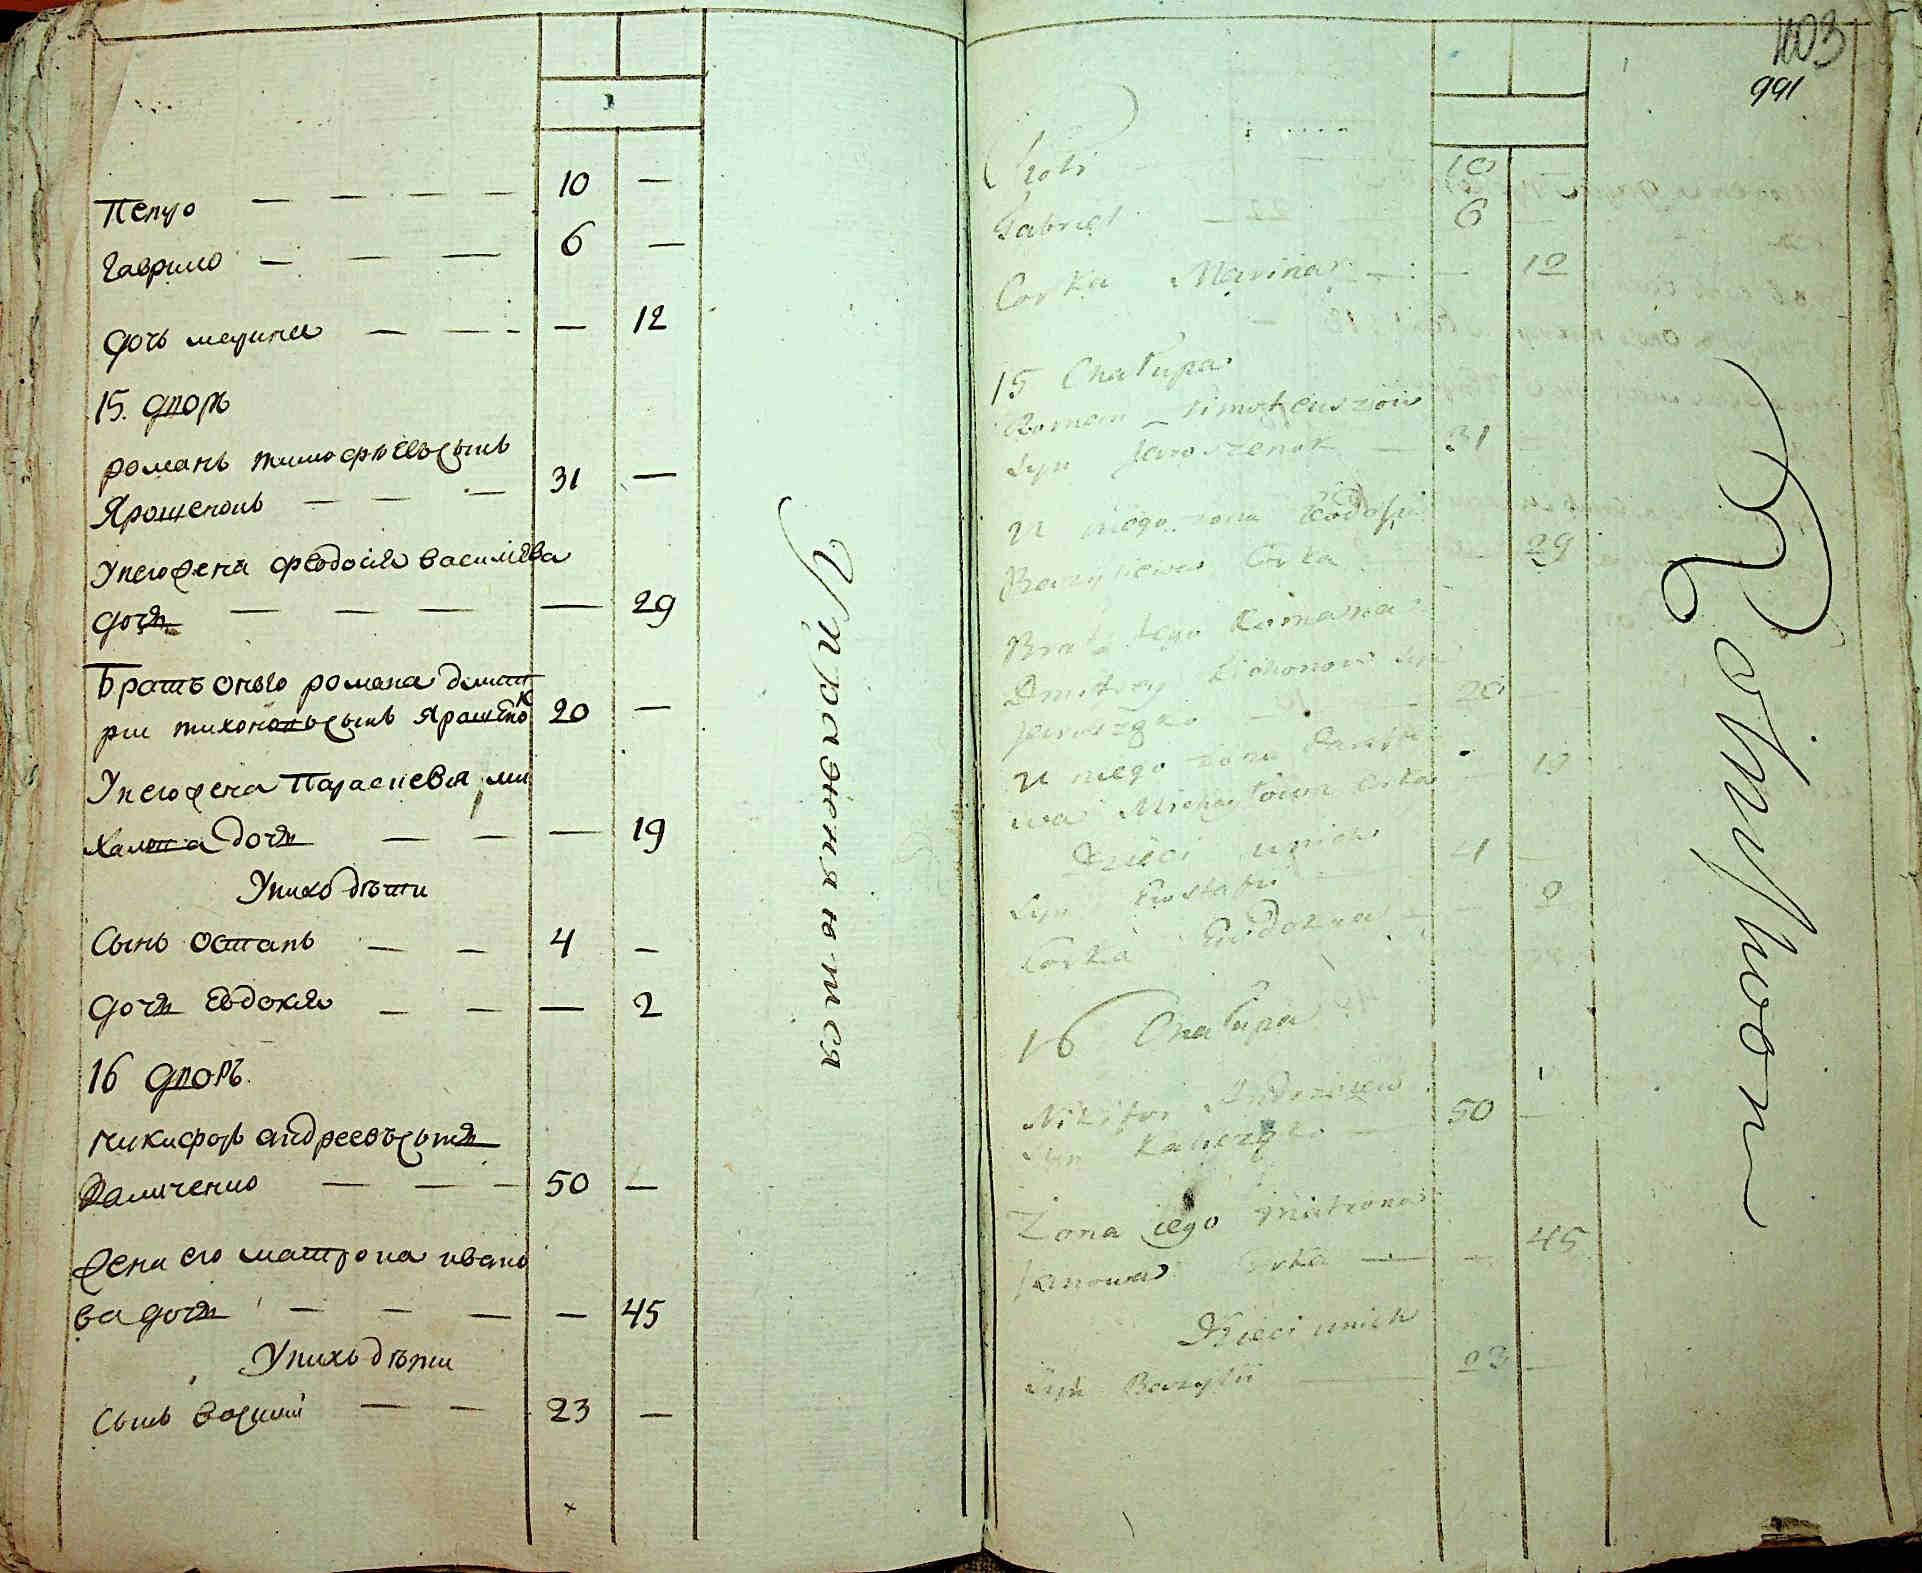 Петро — — — — 10 —
Гаврило — — — 6 —
дочь марина — — - — 12
15. дворъ
романъ тимофѣевъ сынъ
Ярошенокъ — — — 31 —
У него жена феодосія василиева
дочь — — — — 29
Братъ оного романа дмит
рии тихоновъ сынъ Ярошенок 20 —
У него жена Параскевия ми
хайлова дочь — — — 19
У нихъ дѣти
Сынъ остапъ — — 4 —
дочь Евдокия — — — 2
16 дворъ.
никифоръ андреевъ сынъ
Каличенко — — — 50 —
жена его матрона ивано
ва дочь — — — — 45
У нихъ дѣти
сынъ василий — — 23 —
Упражняются
1103
991
10
Gabriel — 6
Corka Marina — — 12
15 Chałupa
Roman Timofeuszow
syn Jaroszenok — 31 —
U niego żona Teodosia
Bazyliewa Corka — — 29
Brat tego Romana
Dmitrey Tichonow syn
20
U niego żona Paraske
wa Michayłowa Corka — 19
Dzieci u nich
Syn Eustafi — 4 —
Corka Ewdokya — — 2
16 Chałupa
Nikifor Andrzeiew
syn — 50 —
Żona iego Matrona
Janowa Corka — — 45
Dzieci u nich
Syn Bazylii — 23 —